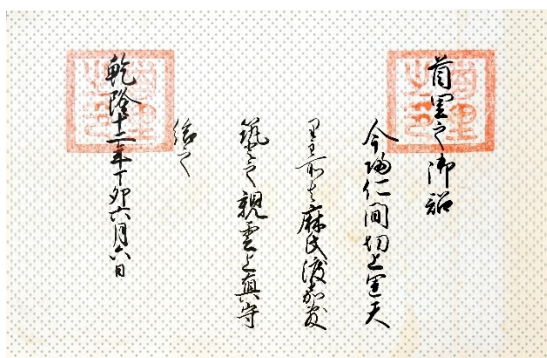 首里之御詔
今帰仁間切上運天
里主所者麻氏渡嘉敷
筑登之親雲上真守
給之
乾隆十二年丁卯六月六日
首里之印
首里之印